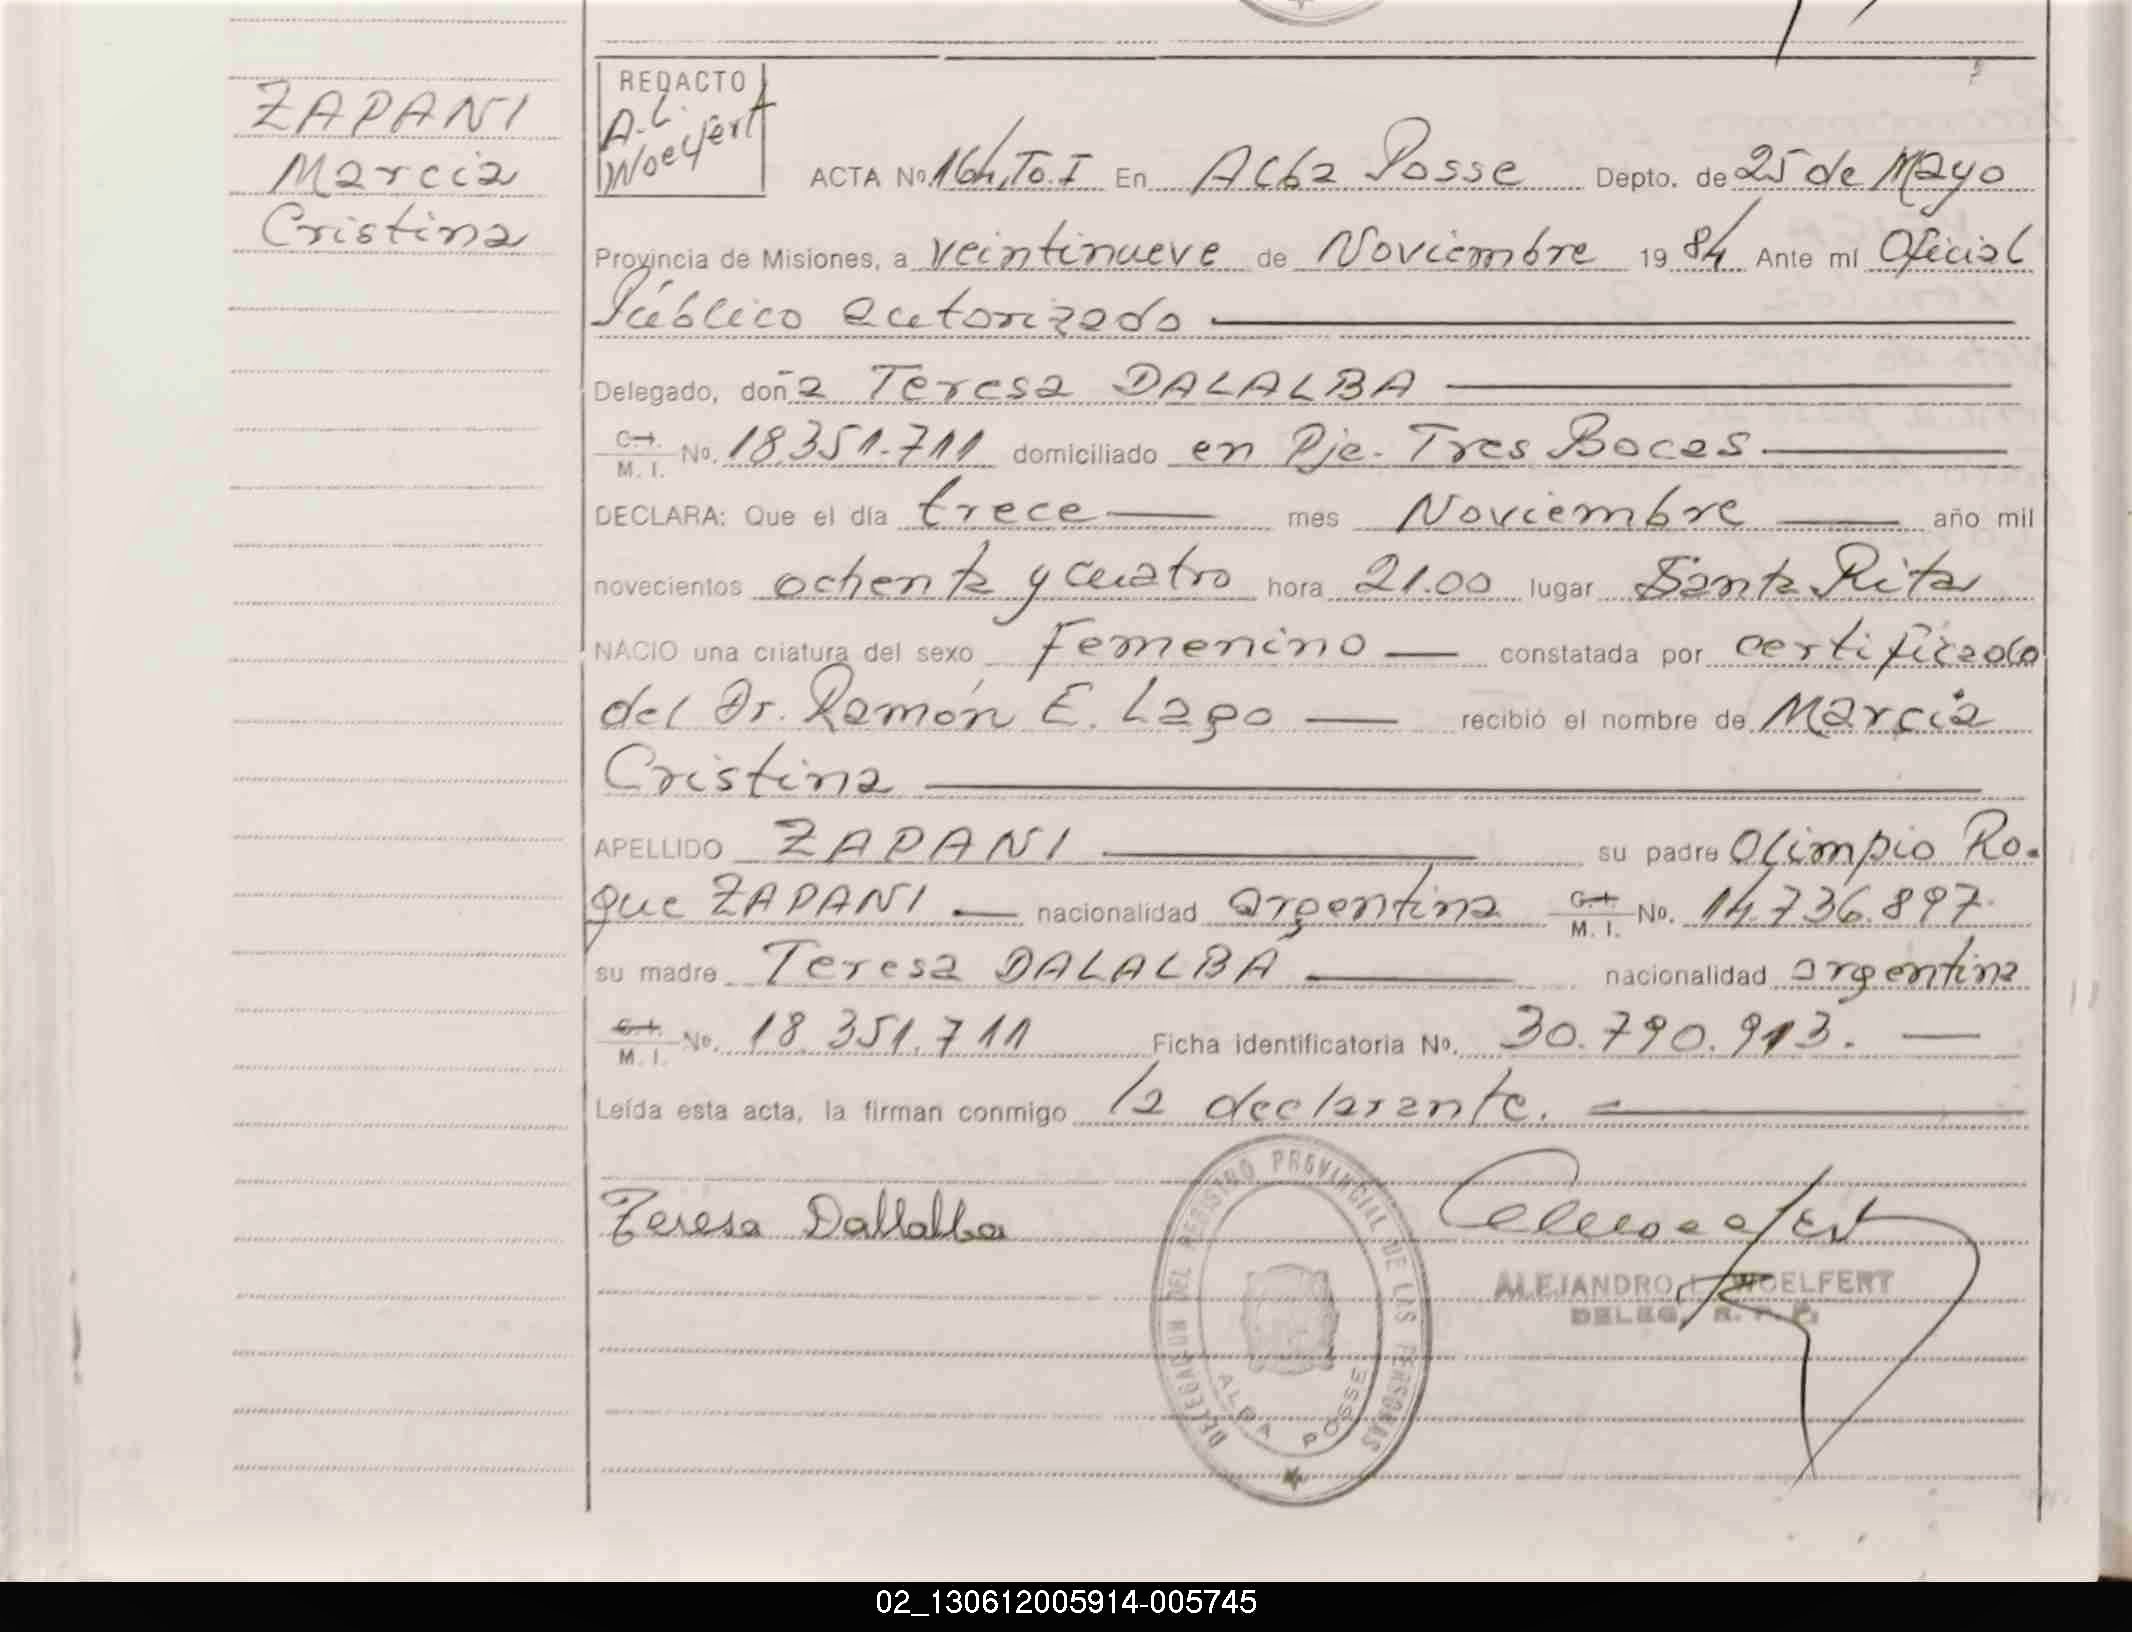 ZAPANI
Marcia
Cristina
REDACTO
A. L.
Woelfert
ACTA No. 164, To. I En Alba Posse Depto. de 25 de Mayo
Provincia de Misiones, a veintinueve de Noviembre 19 84 Ante mi Oficial
Público autorizado
Delegado, doña Teresa DALALBA
C. I.
M. I. No. 18.351.711 domiciliado en Pje. Tres Bocas
DECLARA: Que el día trece mes Noviembre año mil
novecientos ochenta y cuatro hora 21.00 lugar Santa Rita
NACIO una criatura del sexo Femenino constatada por certificado
del Dr. Ramón E. Lago recibió el nombre de Marcia
Cristina
APELLIDO ZAPANI su padre Olimpio Ro-
que ZAPANI nacionalidad argentina C. I. M. I. No. 14.736.897.
su madre Teresa DALALBA nacionalidad argentina
C. I. M. I. No. 18.351.711 Ficha identificatoria No. 30.790.913.
Leída esta acta, la firman conmigo la declarante.
Teresa Dallalba
DELEGACION DEL REGISTRO PROVINCIAL DE LAS PERSONAS
ALBA POSSE
ALEJANDRO L. WOELFERT
DELEG. R. P. P.
02_130612005914-005745